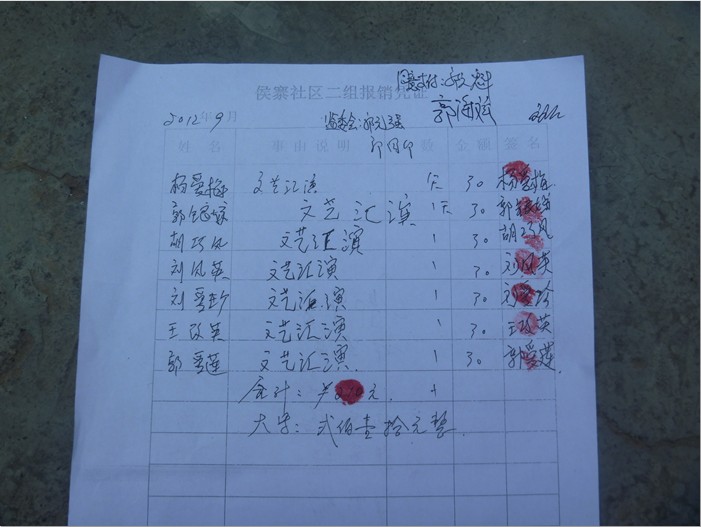 侯寨社区二组报销凭证
郭海斌
2012年9月
监委会:
姓名 事由说明 数 金额 签名
杨爱梅 文艺汇演 1天 30 杨爱梅
郭银婷 文艺汇演 1天 30 郭银婷
胡巧凤 文艺汇演 1 30 胡巧凤
刘凤英 文艺汇演 1 30 刘凤英
刘爱珍 文艺汇演 1 30 刘爱珍
王改英 文艺汇演 1 30 王改英
郭爱莲 文艺汇演 1 30 郭爱莲
合计: 元
大写: 弍佰壹拾元整